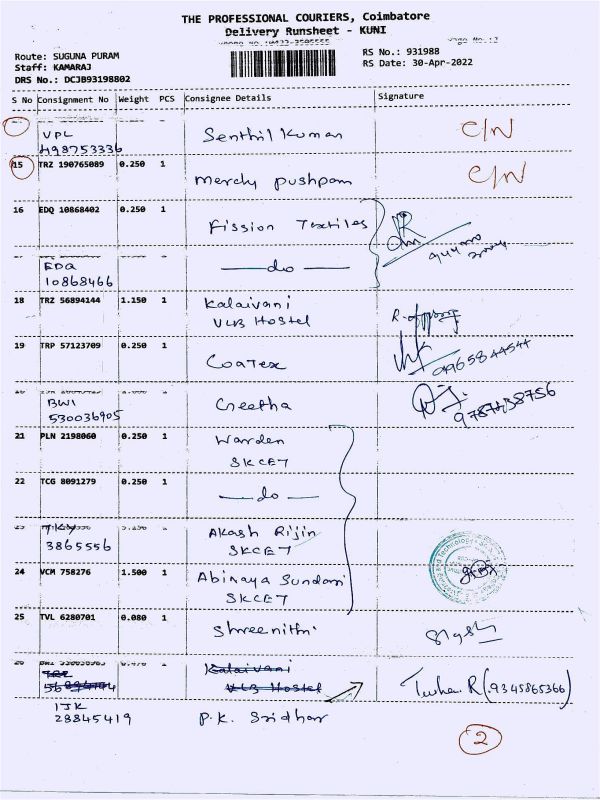 THE PROFESSIONAL COURIERS, Coimbatore
Delivery Runsheet - KUNI
Route: SUGUNA PURAM
Staff: KAMARAJ
DRS No.: DCJB93198802
RS No.: 931988
RS Date: 30-Apr-2022
S No Consignment No Weight PCS Consignee Details Signature
VPL Senthil Kumar C/N
498753336
15 TRZ 190765089 0.250 1 C/N
Mercly Pushpam
16 EDQ 10868402 0.250 1
Fission Textiles
EDQ
10868466 — do —
18 TRZ 56894144 1.150 1 Kalaivani
VLB Hostel
19 TRP 57123709 0.250 1
Coatex 9965844544
BWI Geetha
530036905 9787438756
21 PLN 2198060 0.250 1 Warden
SKCET
22 TCG 8091279 0.250 1
— do —
TKY Akash Rijin
3865556 SKCET
24 VCM 758276 1.500 1 Abinaya Sundari
SKCET
25 TVL 6280701 0.080 1
Shreenithi
26 Kalaivani
VLB Hostel
R (9345865366)
IJK
28845419 P.K. Sridhar
2